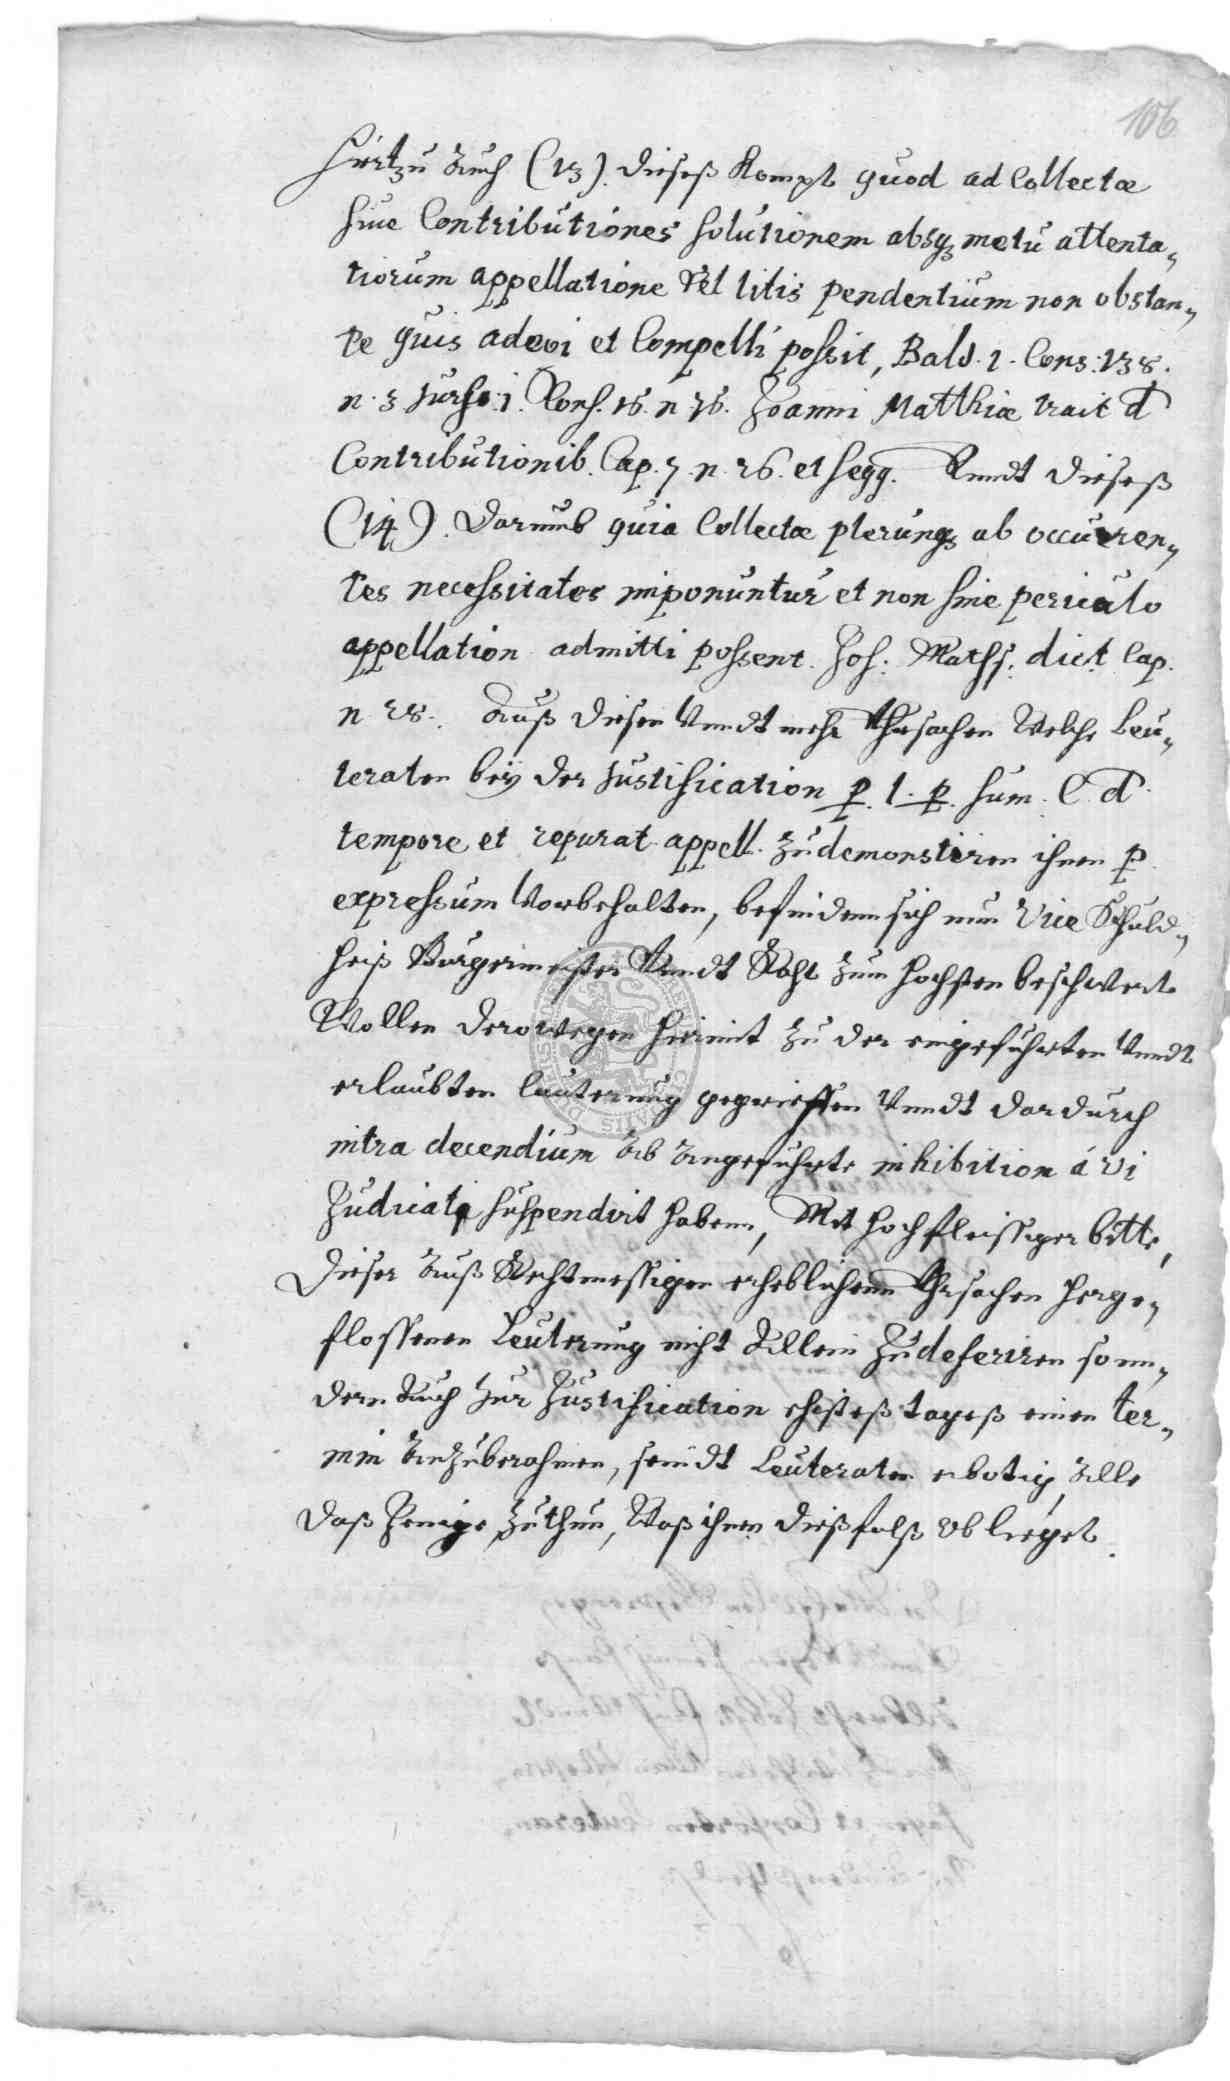 106
Hierzu Auch (13). dieses Kompt quod ad Collectæ
sive Contributiones solutionem absq₃ metu attenta„
tiorum appellatione vel litis pendentium non obstan„
te quis adegi et Compelli possit, Bald. 1. Cons. 138.
n. 3 Jurse. 1. Cons. 16. n 76. Joanni Matthiæ trait d
Contributionib. Cap. 7. n. 26. et seqq. Vnndt dieses
(14). Darumb quia Collectæ plerunq₃ ab occurren„
tes necessitates imponuntur et non sine periculo
appellation admitti possent. Joh. Matth: dict. Cap.
n 28. Auß diesen Vnndt mehr Vhrsachen Welche Leu„
teraten beÿ der Justification p. l. p. sum. C. d.
tempore et reparat. appell. Zu demonstiren ihnen p
expressum Vorbehalten, befindenn sich nun Vice Schuld„
heiß Burgermeister Vnndt Raht Zum hochsten beschwert
Wollen derowegen hiermit Zu der eingefuhrten Vnndt
erlaubten Lauterung gegrieffen Vnndt dardurch
intra decendium Ab Angefuhrte inhibition á vi
Judicati suspendirt habenn, Mit hochfleissiger bitte,
Dieser Auß Rechtmessigen erheblichenn Vhrsachen herge„
flossenen Leuterung nicht Allein Zu deferiren sonn„
dern Auch Zur Justification ehistes tages einen ter„
min Anzuberahmen, seindt Leuteraten erbotig Alle
daß Jenige Zuthun, Waß ihnen dießfalß Oblieget.